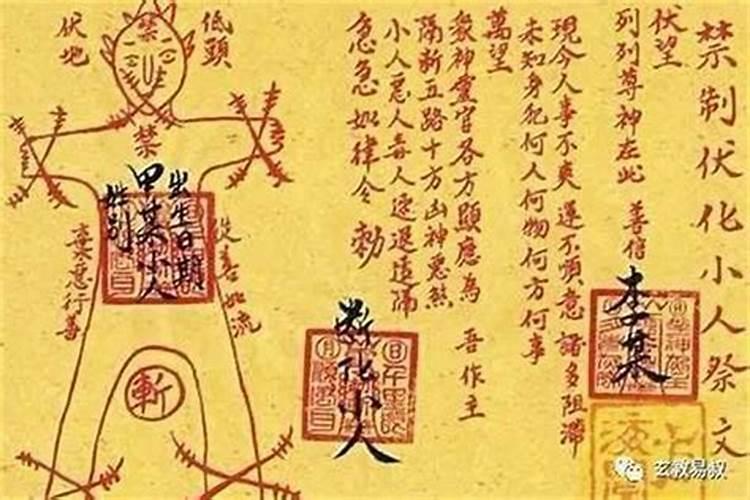 禁制伏化小人祭文
伏望
列列尊神在此 善信
李某
現今人事不爽運不順意諸多阻滯
未知身犯何人何物何方何事
萬望
衆神靈官各方顯應為 吾作主
隔斷五路十方凶神惡煞
小人惡人毒人速退遠隔
急急如律令 勅
斷化小人
低頭
伏地
禁
禁
出生日期
甲某小人
姓别
從善如流
棄惡行善
斬
玄教易叔